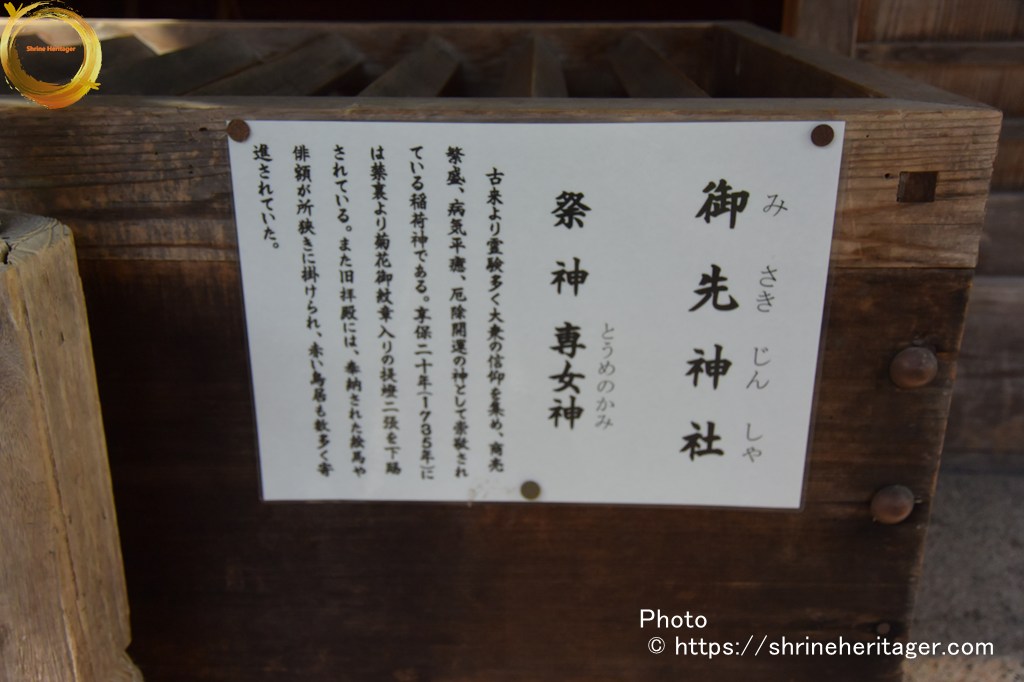 Shrine Heritager
御先神社
みさきじんしゃ
祭神 専女神
とうめのかみ
古来より霊験多く大衆の信仰を集め、商売
繁盛、病気平癒、厄除開運の神として崇敬され
ている稲荷神である。享保二十年(1735年)に
は禁裏より菊花御紋章入りの提燈二張を下賜
されている。また旧拝殿には、奉納された絵馬や
俳額が所狭きに掛けられ、赤い鳥居も数多く寄
進されていた。
Photo
© https://shrineheritager.com